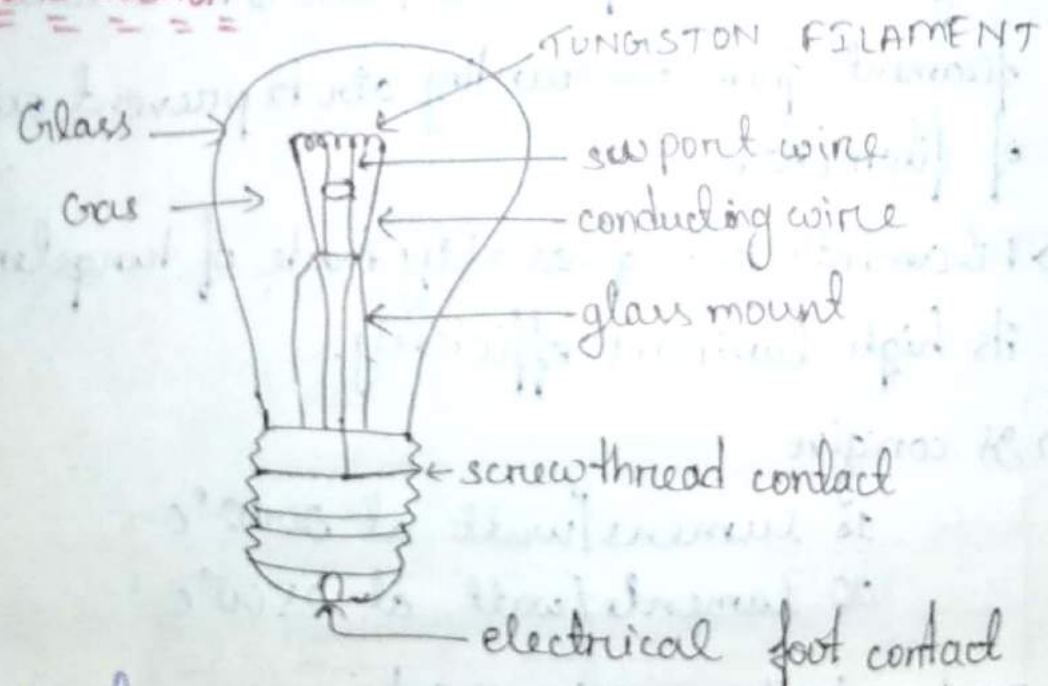 TUNGISTON FILAMENT
Glass
support wire
Gas
conducting wire
glass mount
screw thread contact
electrical foot contact